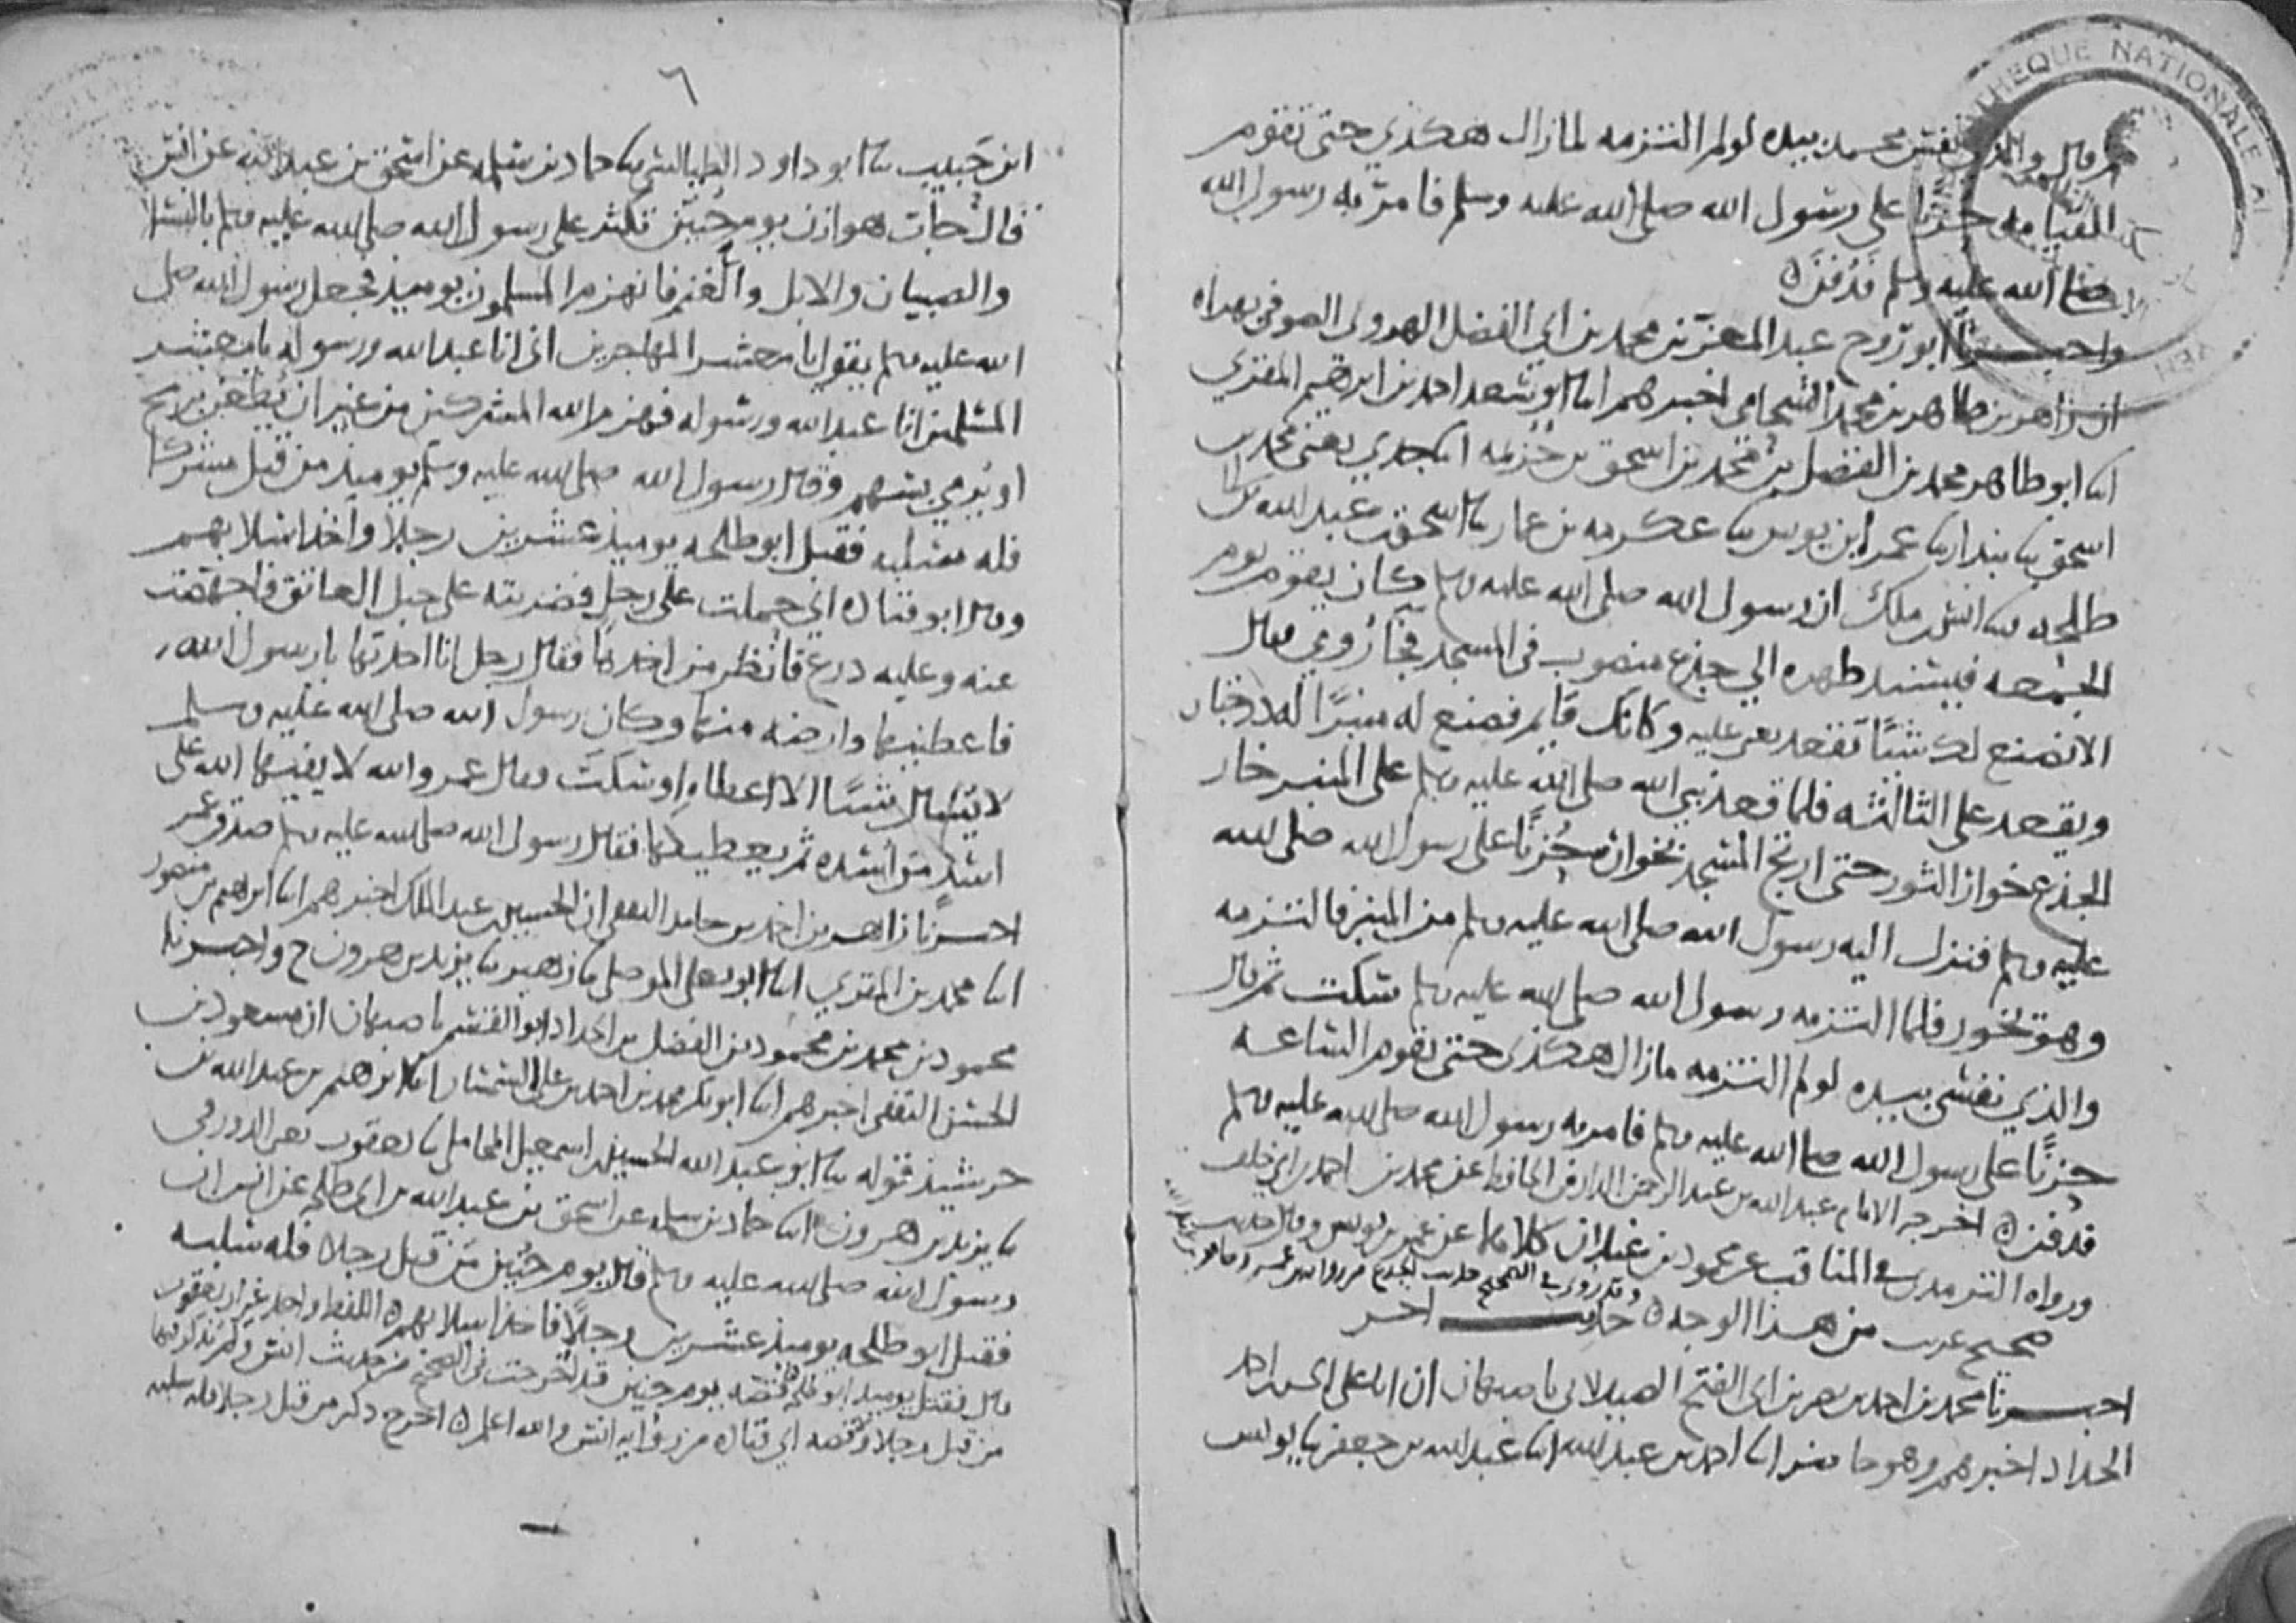 ثم قال والذي نفس محمد بيده لو لم التزمه لما زال هكذي حتى تقوم
القيامه حزنا على رسول الله صلى الله عليه وسلم فامر به رسول الله
صلى الله عليه وسلم فدفن ه
واخبرنا ابو روح عبد المعز بن محمد بن ابي الفضل الهروي الصوفي بهراه
ان زاهر بن طاهر بن محمد الشحامي اخبرهم ابنا ابو سعد احمد بن ابرهيم المقري
ابنا ابو طاهر محمد بن الفضل بن محمد بن اسحق بن خزيمه ابنا جدي يعني محمد بن
اسحق ثنا بندار ثنا عمر ابن يونس ثنا عكرمه بن عمار ثنا اسحق بن عبد الله بن ابي
طلحه ثنا انس بن ملك ان رسول الله صلى الله عليه وسلم كان يقوم يوم
الجمعه فيسند ظهره الي جذع منصوب في المسجد فجا رومي فقال
الا نصنع لك شيئا تقعد يعني عليه وكانك قايم فصنع له منبرا له درجتان
ويقعد على الثالثه فلما قعد نبي الله صلى الله عليه وسلم على المنبر خار
الجذع خوار الثور حتى ارتج المسجد بخواره حزنا على رسول الله صلى الله
عليه وسلم فنزل اليه رسول الله صلى الله عليه وسلم من المنبر فالتزمه
وهو يخور فلما التزمه رسول الله صلى الله عليه وسلم سكت ثم قال
والذي نفسي بيده لو لم التزمه ما زال هكذي حتى تقوم الساعه
حزنا على رسول الله صلى الله عليه وسلم فامر به رسول الله صلى الله عليه وسلم
فدفن ه اخرجه الامام عبد الله بن عبد الرحمن الدارمي الحافظ عن محمد بن احمد بن ابي خلف
ورواه الترمذي في المناقب عن محمود بن غيلان كلاهما عن عمر بن يونس وقال حديث
وقد روي في الصحيح حديث الجذع من رواية ابن عمر
صحيح غريب من هذا الوجه ه حديث اخر
اخبرنا محمد بن احمد بن نصر بن ابي الفتح الصيدلاني باصبهان ان ابا علي
الحداد اخبرهم وهو حاضر ابنا احمد بن عبد الله ابنا عبد الله بن جعفر ثنا يونس
٦
ابن حبيب ثنا ابو داود الطيالسي ثنا حماد بن سلمه عن اسحق بن عبد الله عن انس
قال جات هوازن يوم حنين تكثر على رسول الله صلى الله عليه وسلم بالنسا
والصبيان والابل والغنم فانهزم المسلمون يوميذ فجعل رسول الله صلى
الله عليه وسلم يقول يا معشر المهاجرين اني انا عبد الله ورسوله يا معشر
المسلمين انا عبد الله ورسوله فهزم الله المشركين من غير ان يطعن برمح
او يرمي بسهم وقال رسول الله صلى الله عليه وسلم يوميذ من قتل مشركا
فله سلبه فقتل ابو طلحه يوميذ عشرين رجلا واخذ اسلابهم
وقال ابو قتاده اني حملت على رجل فضربته على حبل العاتق فاجهضت
عنه وعليه درع فانظر من اخذها فقال رجل انا اخذتها يا رسول الله
فاعطنيها وارضه منها وكان رسول الله صلى الله عليه وسلم
لا يسال شيئا الا اعطاه او سكت فقال عمر والله لا يفيها الله على
اسد من اسده ثم يعطيكها فقال رسول الله صلى الله عليه وسلم صدق عمر
اخبرنا زاهر بن احمد بن حامد الثقفي ان الحسين بن عبد الملك اخبرهم ابنا ابرهيم بن منصور
ابنا محمد بن المقري ابنا ابو يعلى الموصلي ثنا زهير ثنا يزيد بن هرون ح واخبرنا
محمود بن محمد بن محمود بن الفضل بن الحداد ابو القسم باصبهان ان مسعود بن
الحسن الثقفي اخبرهم ابنا ابو بكر محمد بن احمد بن علي السمسار ابنا ابرهيم بن عبد الله بن
خرشيذ قوله ثنا ابو عبد الله الحسين بن اسمعيل المحاملي ثنا يعقوب يعني الدورقي
ثنا يزيد بن هرون ابنا حماد بن سلمه عن اسحق بن عبد الله بن ابي طلحه عن انس ان
رسول الله صلى الله عليه وسلم قال يوم حنين من قتل رجلا فله سلبه
فقتل ابو طلحه يوميذ عشرين رجلا فاخذ اسلابهم ه اللفظ واحد غير ان يعقوب
قال فقتل يوميذ ابو طلحه قصه يوم حنين قد اخرجت في الصحيح من حديث انس ولم نذكر فيها
من قتل رجلا وقصه ابي قتاده من رواية انس والله اعلم ه اخرج ذكر من قتل رجلا فله سلبه
THEQUE NATIONALE